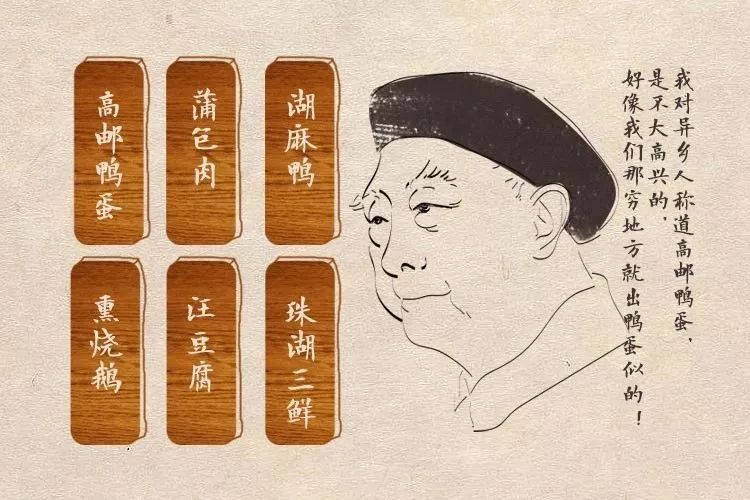 高邮鸭蛋
蒲包肉
湖麻鸭
熏烧鹅
汪豆腐
珠湖三鲜
我对异乡人称道高邮鸭蛋，
是不大高兴的，
好像我们那穷地方就出鸭蛋似的！